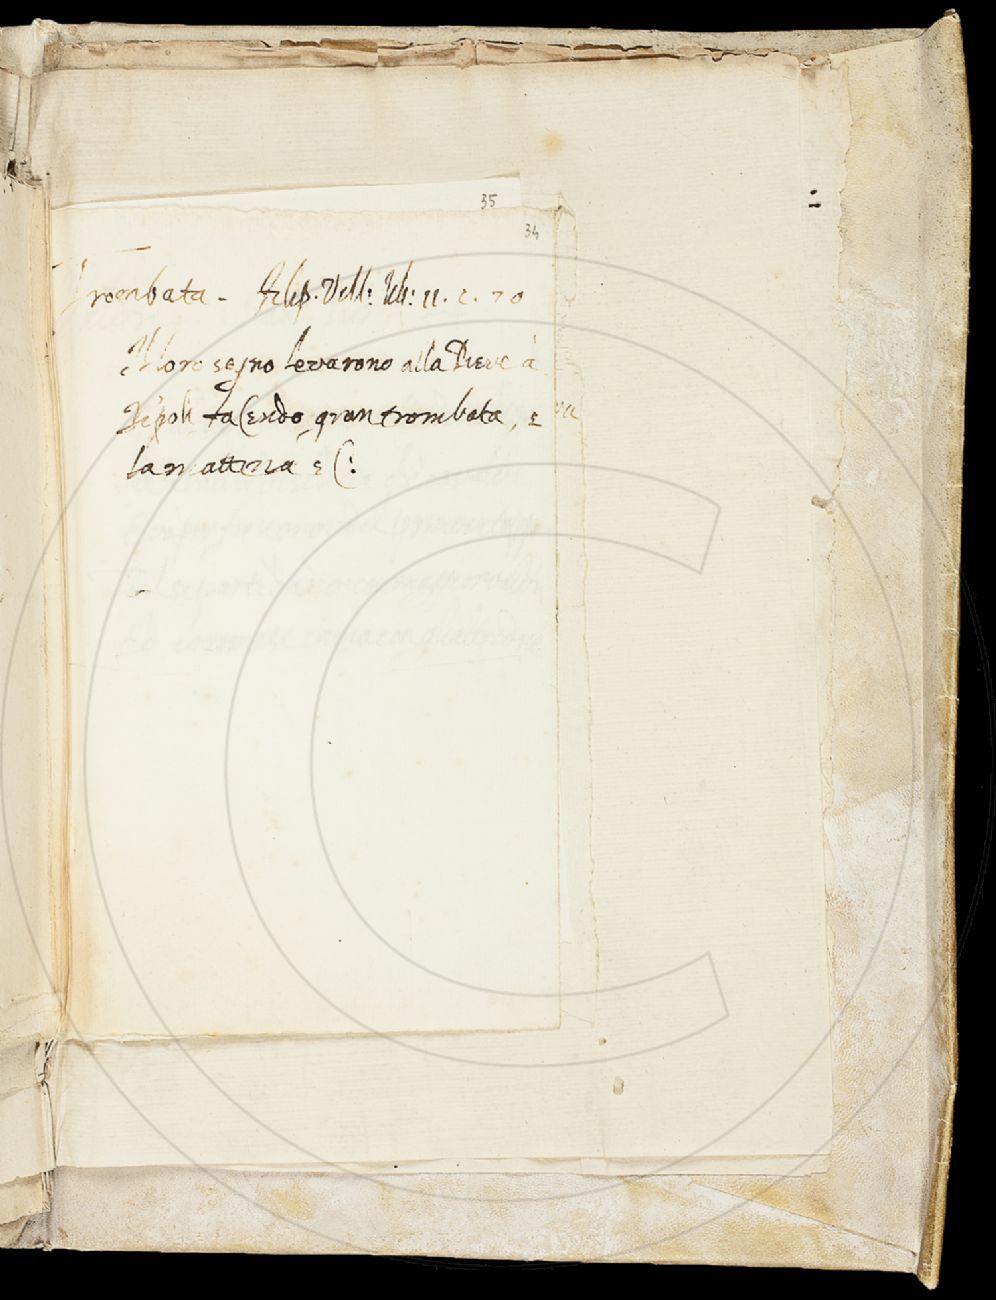 35
34
Trombata - Filip. Vill: lib: 11. c. 70
Il loro segno levarono alla Pieve à
Ripoli facendo gran trombata, e
la mattina e C: